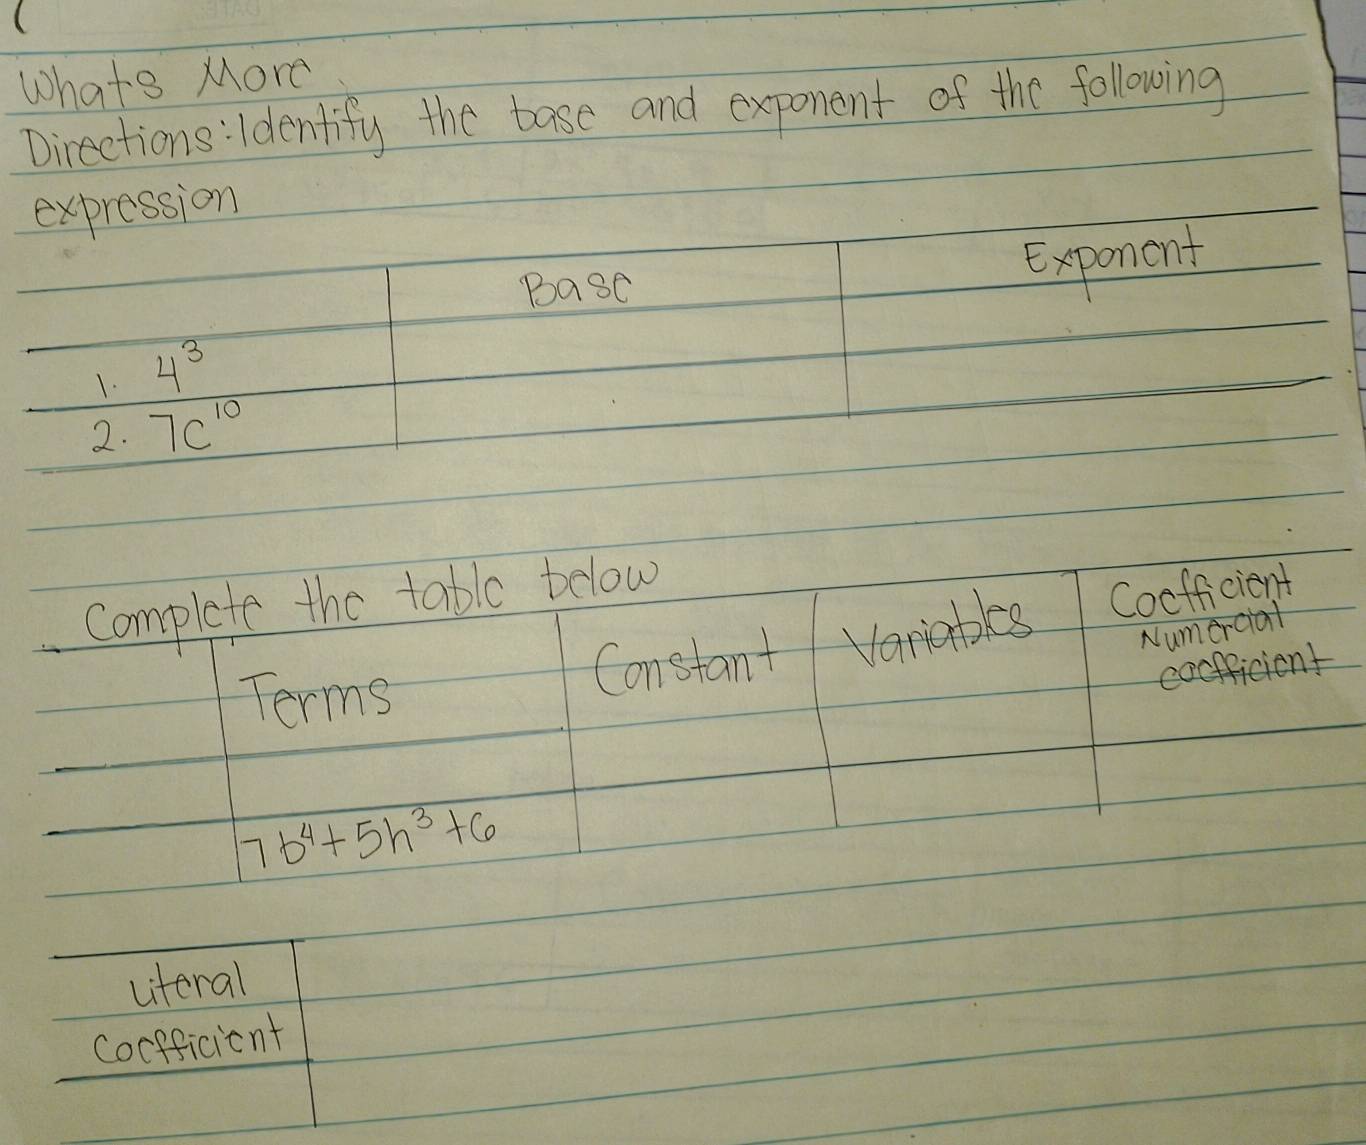 Whats More
Directions: Identify the base and exponent of the following
expression
Base Exponent
1. 4³
2. 7c¹⁰
Complete the table below
Terms Constant Variables Coefficient
Numercial
coefficient
7b⁴+5h³+6
Literal
Coefficient